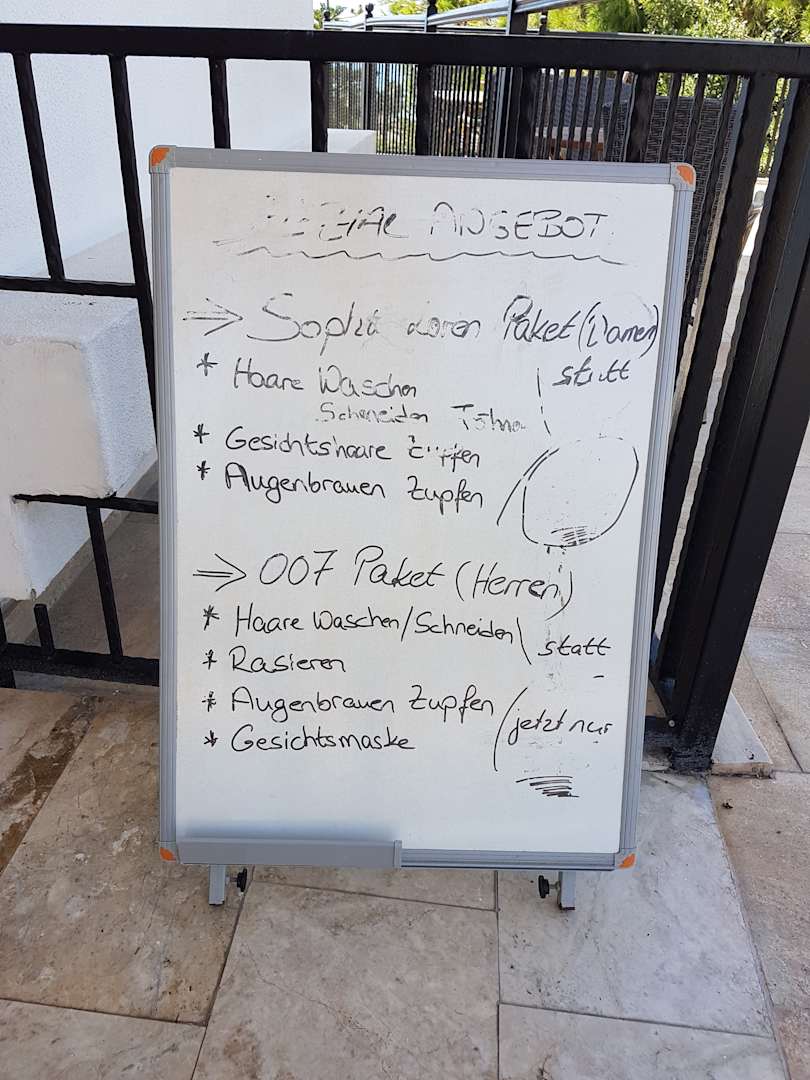 SPEZIAL ANGEBOT
⇒ Sophia Loren Paket (Damen)
* Haare Waschen
statt
Schneiden Föhnen
* Gesichtshaare Zupfen
* Augenbrauen Zupfen
⇒ 007 Paket (Herren)
* Haare Waschen/Schneiden
statt
* Rasieren
* Augenbrauen Zupfen
jetzt nur
* Gesichtsmaske